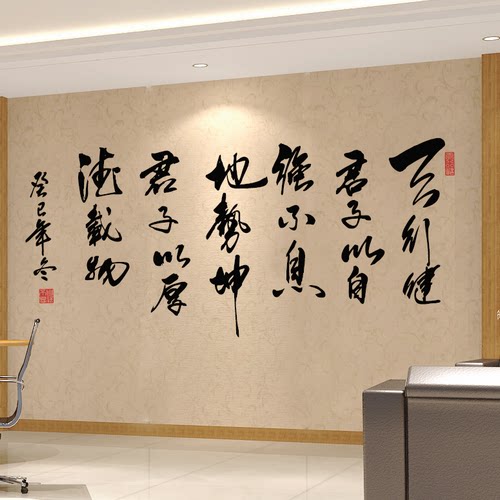 天行健
君子以自
强不息
地势坤
君子以厚
德载物
癸巳年冬